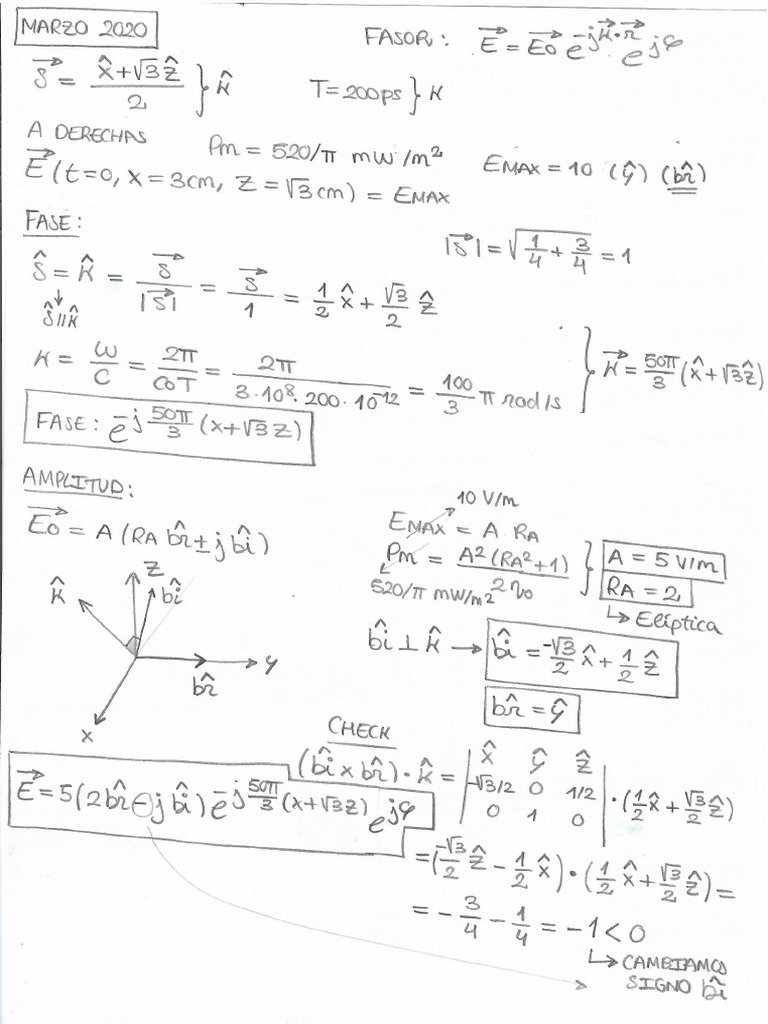 MARZO 2020
FASOR: E⃗ = E⃗o e^{-j k⃗·r⃗} e^{jφ}
s⃗ = (x̂+√3ẑ)/2 } k̂
T=200ps } k
A DERECHAS
Pm = 520/π mW/m²
EMAX = 10 (ŷ) (br̂)
E⃗(t=0, x=3cm, z=√3cm) = EMAX
FASE:
|s⃗| = √(1/4 + 3/4) = 1
ŝ = k̂ = s⃗/|s⃗| = s⃗/1 = 1/2 x̂ + √3/2 ẑ
↓
ŝ∥k̂
k = ω/c = 2π/(c₀T) = 2π/(3·10⁸·200·10⁻¹²) = 100/3 π rad/s } k⃗ = 50π/3 (x̂+√3ẑ)
FASE: e^{-j 50π/3 (x+√3z)}
AMPLITUD:
E⃗o = A (RA br̂ ± j bî)
10 V/m
EMAX = A RA
Pm = A²(RA²+1)/(2η₀)
520/π mW/m²
A = 5 V/m
RA = 2
↳ Elíptica
k̂
z
bî
y
br̂
x
bî ⊥ k̂ → bî = -√3/2 x̂ + 1/2 ẑ
br̂ = ŷ
CHECK
(bî x br̂)·k̂ = | x̂ ŷ ẑ
-√3/2 0 1/2
0 1 0 | ·(1/2 x̂ + √3/2 ẑ)
E⃗ = 5(2br̂ - j bî) e^{-j 50π/3 (x+√3z)} e^{jφ}
= (-√3/2 ẑ - 1/2 x̂)·(1/2 x̂ + √3/2 ẑ) =
= -3/4 - 1/4 = -1 < 0
↳ CAMBIAMOS
SIGNO bî